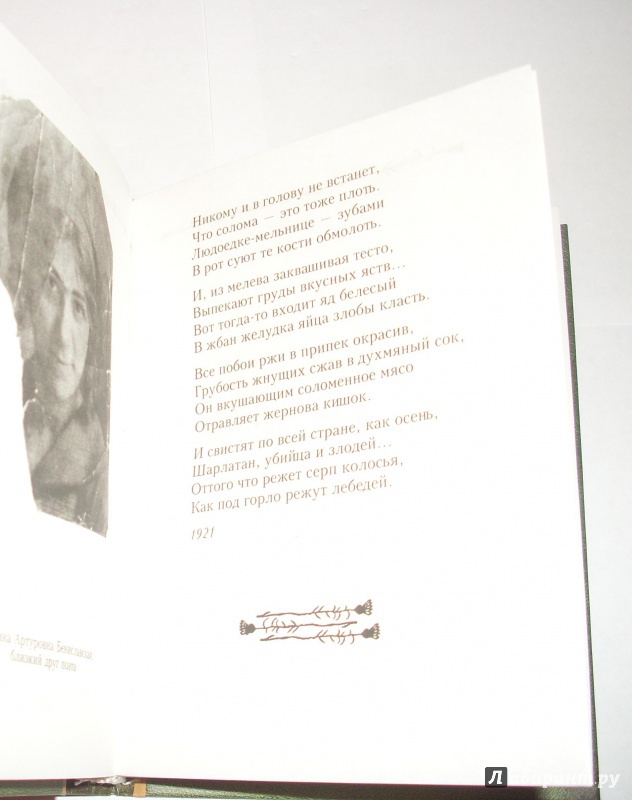 Никому и в голову не встанет,
Что солома — это тоже плоть.
Людоедке-мельнице — зубами
В рот суют те кости обмолоть.
И, из мелева заквашивая тесто,
Выпекают груды вкусных яств...
Вот тогда-то входит яд белесый
В жбан желудка яйца злобы класть.
Все побои ржи в припек окрасив,
Грубость жнущих сжав в духмяный сок,
Он вкушающим соломенное мясо
Отравляет жернова кишок.
И свистят по всей стране, как осень,
Шарлатан, убийца и злодей...
Оттого что режет серп колосья,
Как под горло режут лебедей.
1921
Артуровна Бениславская
близкий друг поэта
Лабиринт.ру